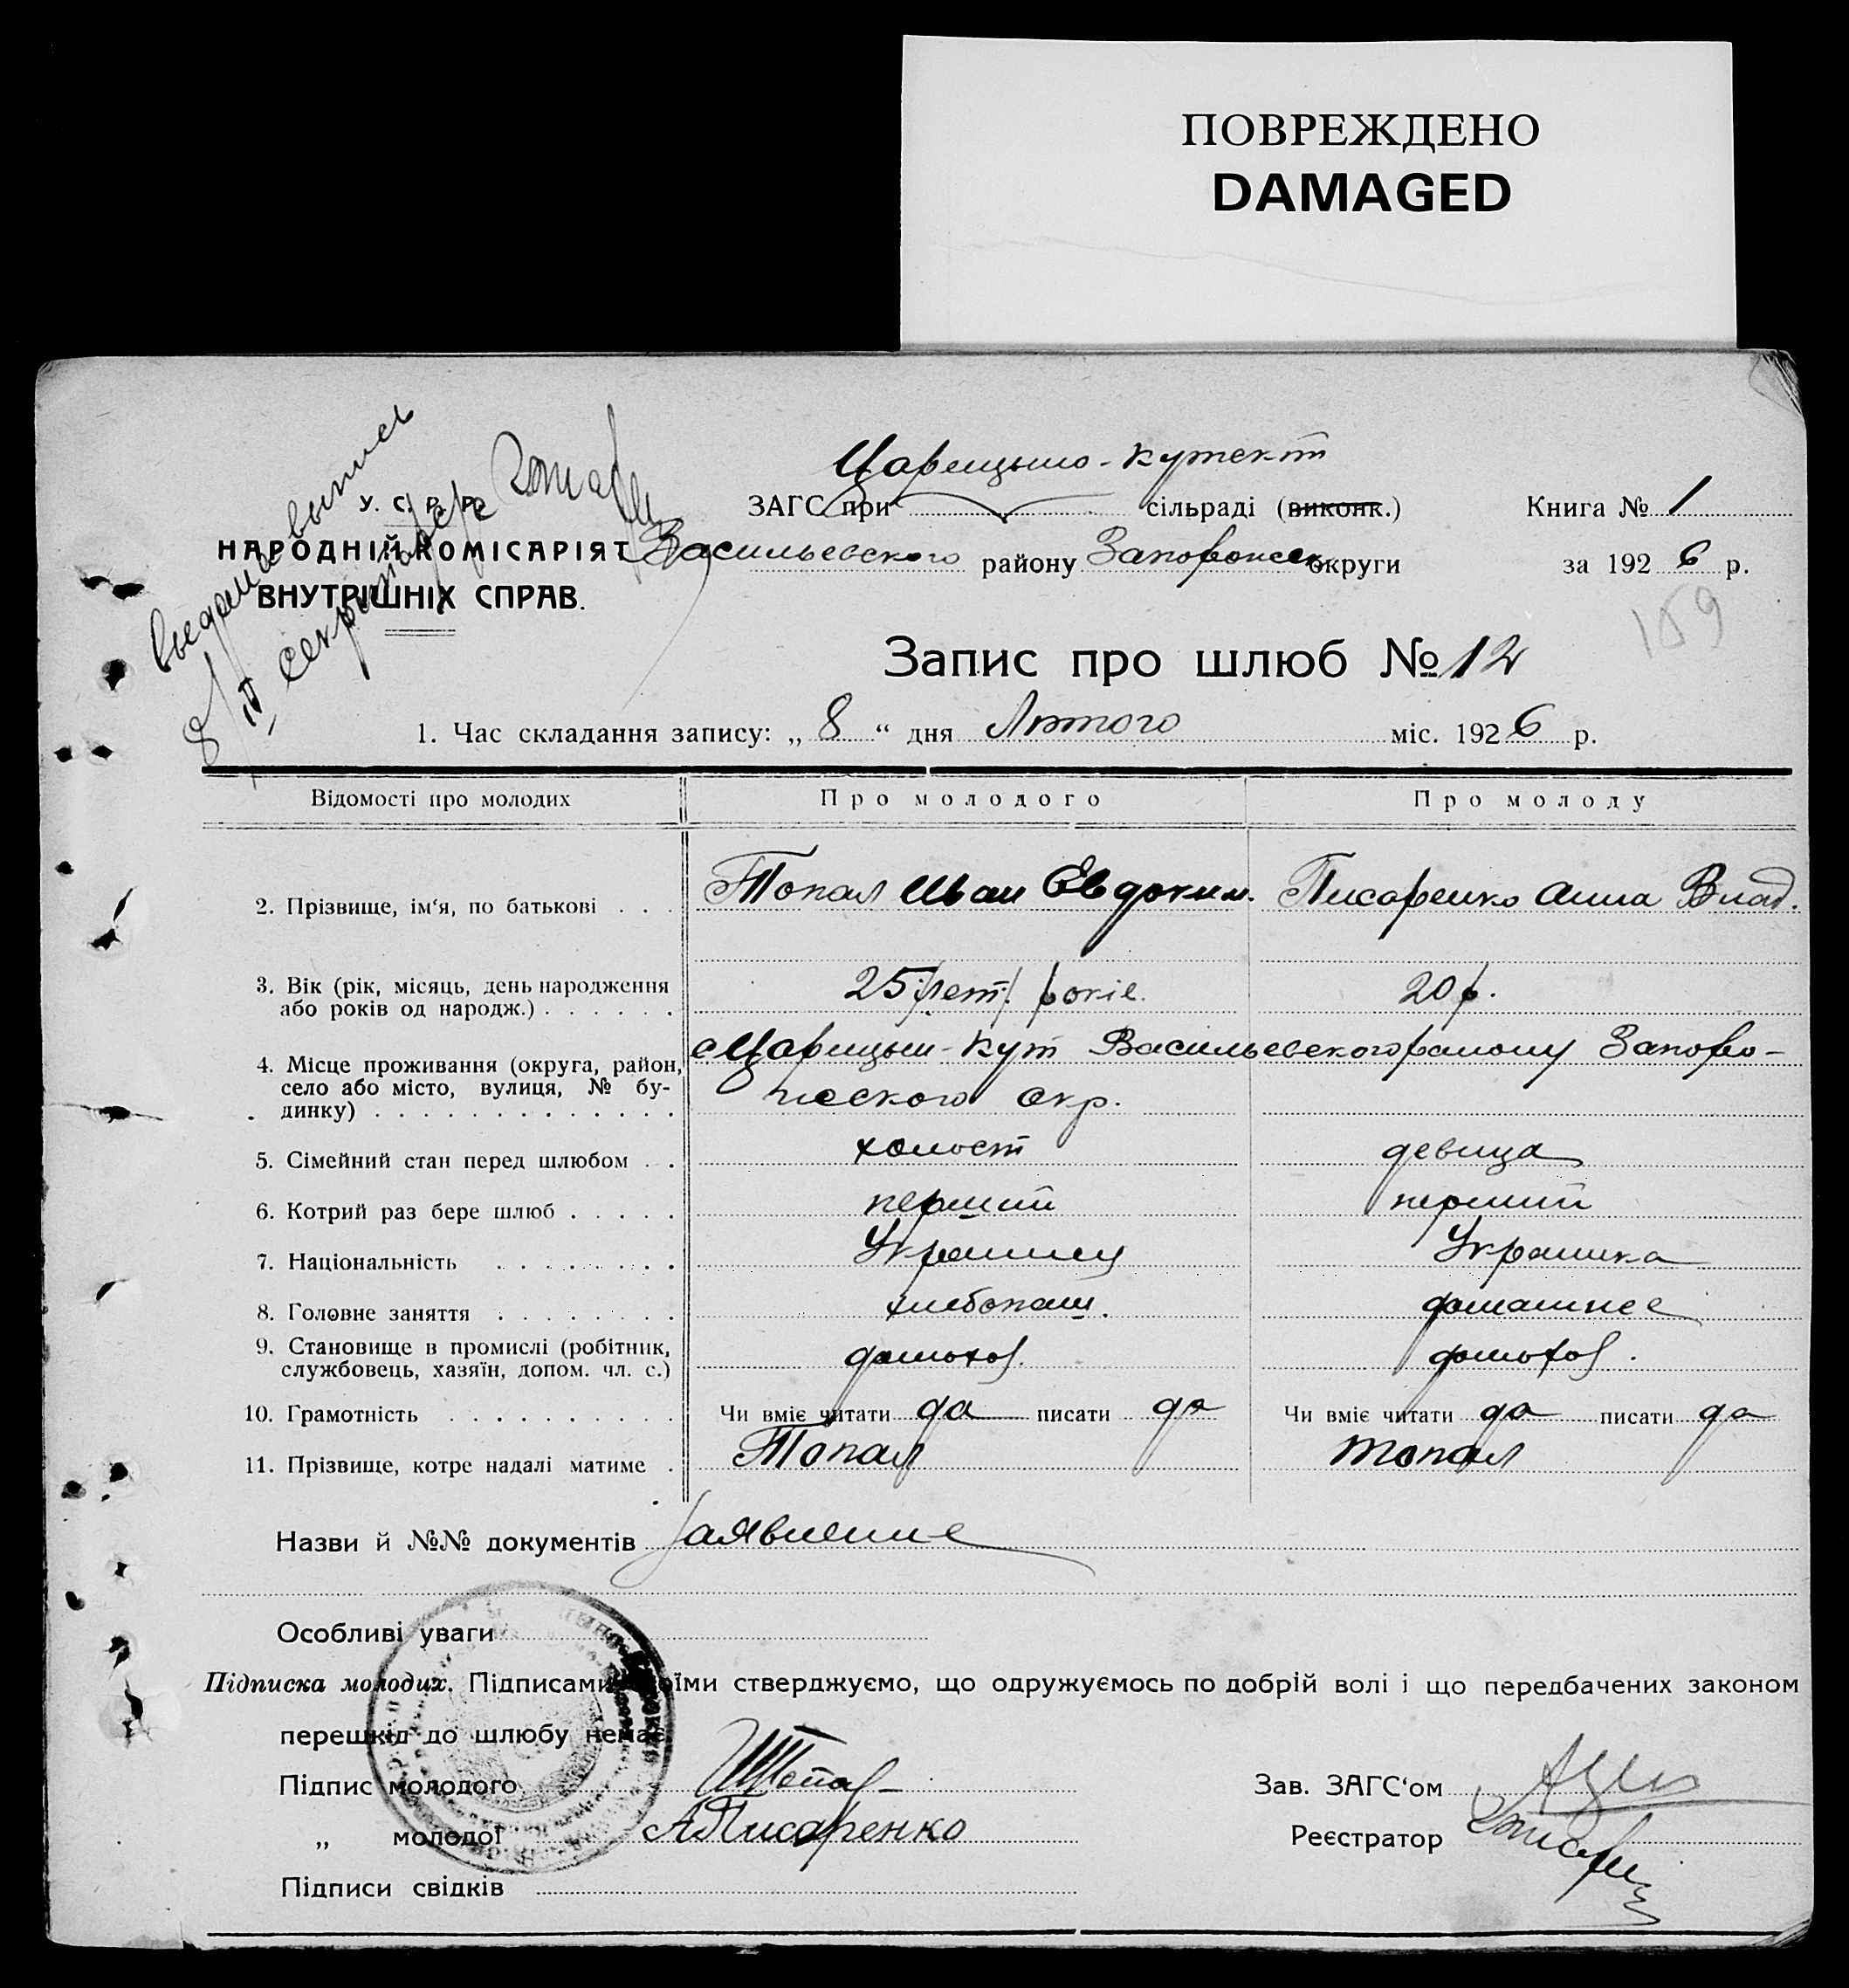 ПОВРЕЖДЕНО
DAMAGED
Царицыно-кутскт
У. С. Р. Р.
НАРОДНІЙ КОМІСАРІЯТ
ВНУТРІШНІХ СПРАВ.
выдана выпись
8/IV секретарь
ЗАГС при сільраді (виконк.)
Васильевского району Запорожск округи
Книга № 1
за 1926 р.
159
Запис про шлюб № 12
1. Час складання запису: „ 8 “ дня Лютого міс. 1926 р.
Відомості про молодих Про молодого Про молоду
2. Прізвище, ім'я, по батькові . . . Топал Иван Евдоким. Писаренко Анна Влад.
3. Вік (рік, місяць, день народження
або років од народж.) . . . . . . 25 /лет/ років. 20 р.
4. Місце проживання (округа, район, с Царицын-Кут Васильевского району Запоро-
село або місто, вулиця, № бу-
динку) . . . . . . . . . . . . . жского окр.
5. Сімейний стан перед шлюбом . . холост девица
6. Котрий раз бере шлюб . . . . . перший перший
7. Національність . . . . . . . . Украинец Украинка
8. Головне заняття . . . . . . . . хлебопаш. домашнее
9. Становище в промислі (робітник,
службовець, хазяїн, допом. чл. с.) домохоз. домохоз.
10. Грамотність . . . . . . . . . . Чи вміє читати да писати да Чи вміє читати да писати да
11. Прізвище, котре надалі матиме . Топал Топал
Назви й №№ документів заявление
Особливі уваги
Підписка молодих. Підписами своїми стверджуємо, що одружуємось по добрій волі і що передбачених законом
перешкід до шлюбу немає.
Підпис молодого ИТопал Зав. ЗАГС'ом
„ молодої АПисаренко Реєстратор
Підписи свідків